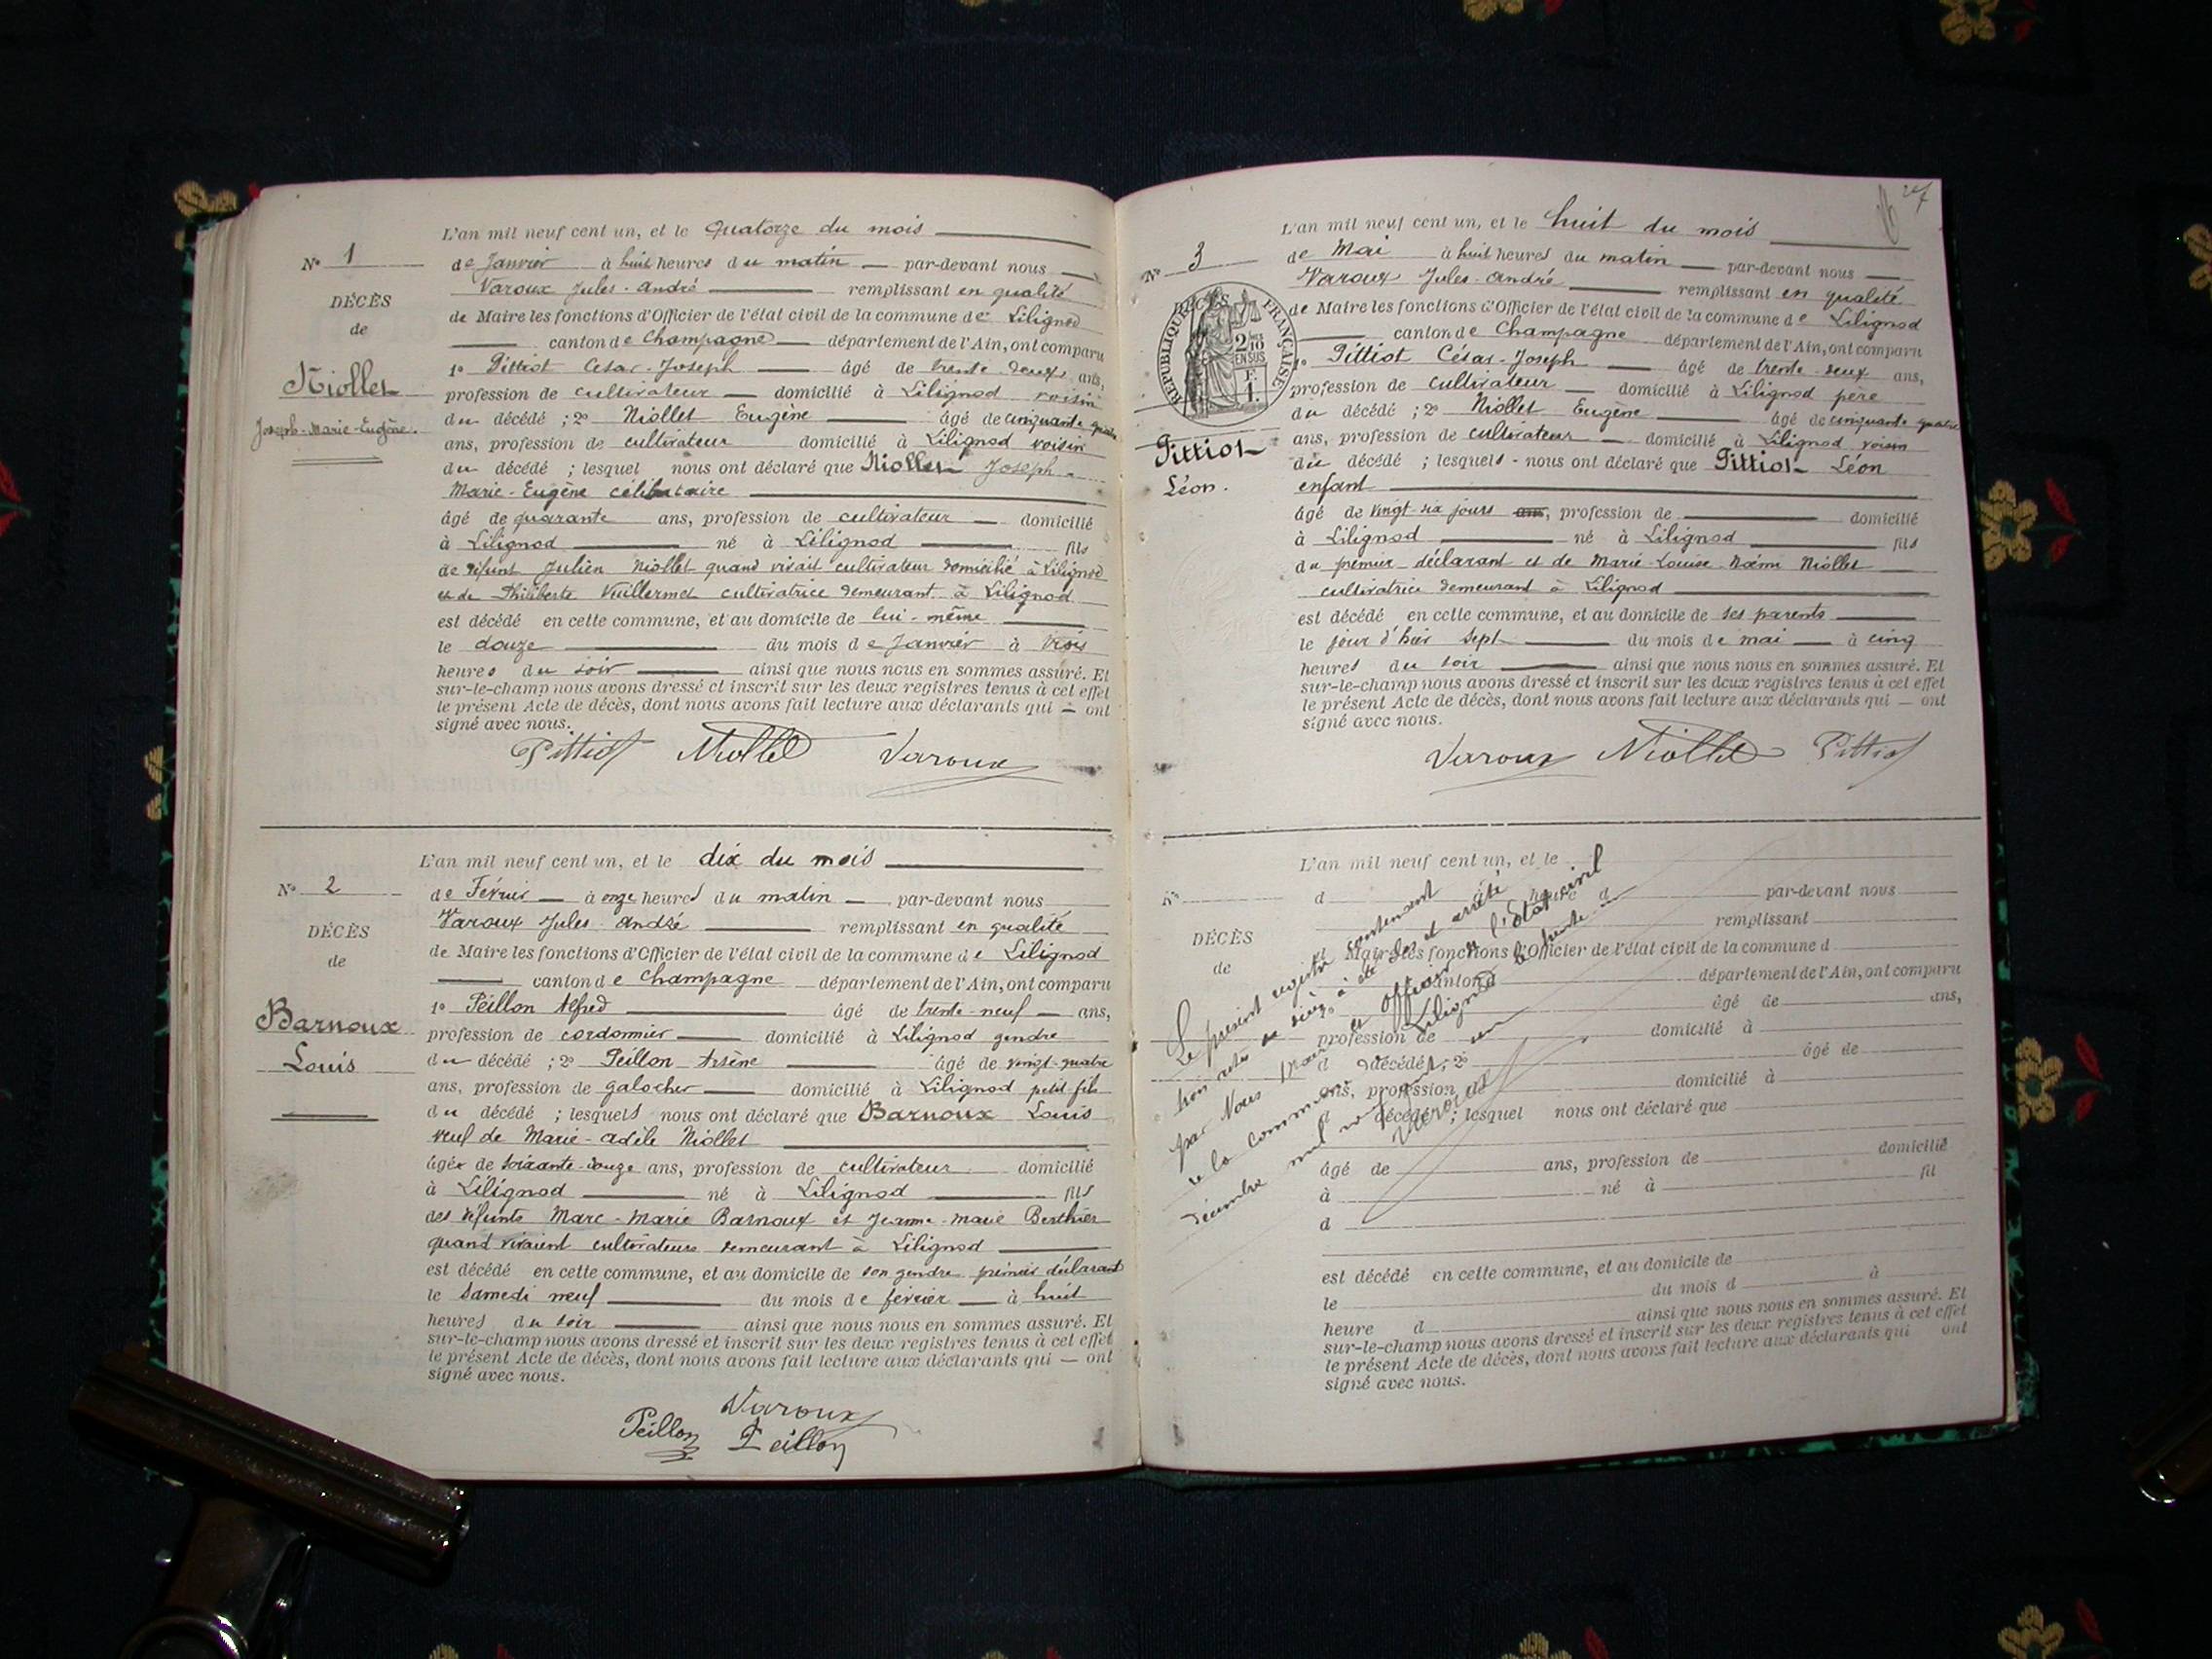 L'an mil neuf cent un, et le Quatorze du mois
N° 1
de Janvier à huit heures du matin par-devant nous
Varoux Jules-André remplissant en qualité
DÉCÈS
de Maire les fonctions d'Officier de l'état civil de la commune de Lilignod
de
canton de Champagne département de l'Ain, ont comparu
1° Pittiot César-Joseph âgé de trente deux ans,
Niollet
profession de cultivateur domicilié à Lilignod voisin
du décédé ; 2° Niollet Eugène âgé de cinquante quatre
Joseph-Marie-Eugène.
ans, profession de cultivateur domicilié à Lilignod voisin
du décédé ; lesquel nous ont déclaré que Niollet Joseph-
Marie-Eugène célibataire
âgé de quarante ans, profession de cultivateur domicilié
à Lilignod né à Lilignod fils
de défunt Julien Niollet quand vivait cultivateur domicilié à Lilignod
et de Philiberte Vuillermet cultivatrice demeurant à Lilignod
est décédé en cette commune, et au domicile de lui-même
le douze du mois de Janvier à trois
heures du soir ainsi que nous nous en sommes assuré. Et
sur-le-champ nous avons dressé et inscrit sur les deux registres tenus à cet effet
le présent Acte de décès, dont nous avons fait lecture aux déclarants qui — ont
signé avec nous.
Pittiot Niollet Varoux
L'an mil neuf cent un, et le dix du mois
N° 2
de Février à onze heures du matin par-devant nous
Varoux Jules-André remplissant en qualité
DÉCÈS
de Maire les fonctions d'Officier de l'état civil de la commune de Lilignod
de
canton de Champagne département de l'Ain, ont comparu
1° Peillon Alfred âgé de trente-neuf ans,
Barnoux
profession de cordonnier domicilié à Lilignod gendre
Louis
du décédé ; 2° Peillon Arsène âgé de vingt-quatre
ans, profession de galocher domicilié à Lilignod petit-fils
du décédé ; lesquels nous ont déclaré que Barnoux Louis
veuf de Marie-Adèle Niollet
âgé de soixante-douze ans, profession de cultivateur domicilié
à Lilignod né à Lilignod fils
des défunts Marc-Marie Barnoux et Jeanne-Marie Berthier
quand vivaient cultivateurs demeurant à Lilignod
est décédé en cette commune, et au domicile de son gendre premier déclarant
le Samedi neuf du mois de février à huit
heures du soir ainsi que nous nous en sommes assuré. Et
sur-le-champ nous avons dressé et inscrit sur les deux registres tenus à cet effet
le présent Acte de décès, dont nous avons fait lecture aux déclarants qui — ont
signé avec nous.
Varoux
Peillon Peillon
27
L'an mil neuf cent un, et le huit du mois
N° 3
de Mai à huit heures du matin par-devant nous
Varoux Jules-André remplissant en qualité
RÉPUBLIQUE FRANÇAISE
DÉCÈS
2/10 EN SUS
F. 1.
de Maire les fonctions d'Officier de l'état civil de la commune de Lilignod
canton de Champagne département de l'Ain, ont comparu
1° Pittiot César-Joseph âgé de trente-deux ans,
profession de cultivateur domicilié à Lilignod père
du décédé ; 2° Niollet Eugène âgé de cinquante quatre
Pittiot
ans, profession de cultivateur domicilié à Lilignod voisin
Léon.
du décédé ; lesquels nous ont déclaré que Pittiot Léon
enfant
âgé de vingt six jours ans, profession de domicilié
à Lilignod né à Lilignod fils
du premier déclarant et de Marie-Louise-Noémi Niollet
cultivatrice demeurant à Lilignod
est décédé en cette commune, et au domicile de ses parents
le jour d'hier sept du mois de mai à cinq
heures du soir ainsi que nous nous en sommes assuré. Et
sur-le-champ nous avons dressé et inscrit sur les deux registres tenus à cet effet
le présent Acte de décès, dont nous avons fait lecture aux déclarants qui — ont
signé avec nous.
Varoux Niollet Pittiot
L'an mil neuf cent un, et le
N°
d à heure d par-devant nous
remplissant
DÉCÈS
d Maire les fonctions d'Officier de l'état civil de la commune d
de
canton d département de l'Ain, ont comparu
1° âgé de ans,
profession de domicilié à
d décédé ; 2° âgé de
ans, profession de domicilié à
d décédé ; lesquel nous ont déclaré que
âgé de ans, profession de domicilié
à né à fil
d
est décédé en cette commune, et au domicile de
le du mois d à
heure d ainsi que nous nous en sommes assuré. Et
sur-le-champ nous avons dressé et inscrit sur les deux registres tenus à cet effet
le présent Acte de décès, dont nous avons fait lecture aux déclarants qui ont
signé avec nous.
Le présent registre contenant
trois actes de décès a été clos et arrêté
par Nous Maire et Officier de l'état civil
de la commune de Lilignod le trente un
décembre mil neuf cent un
Varoux